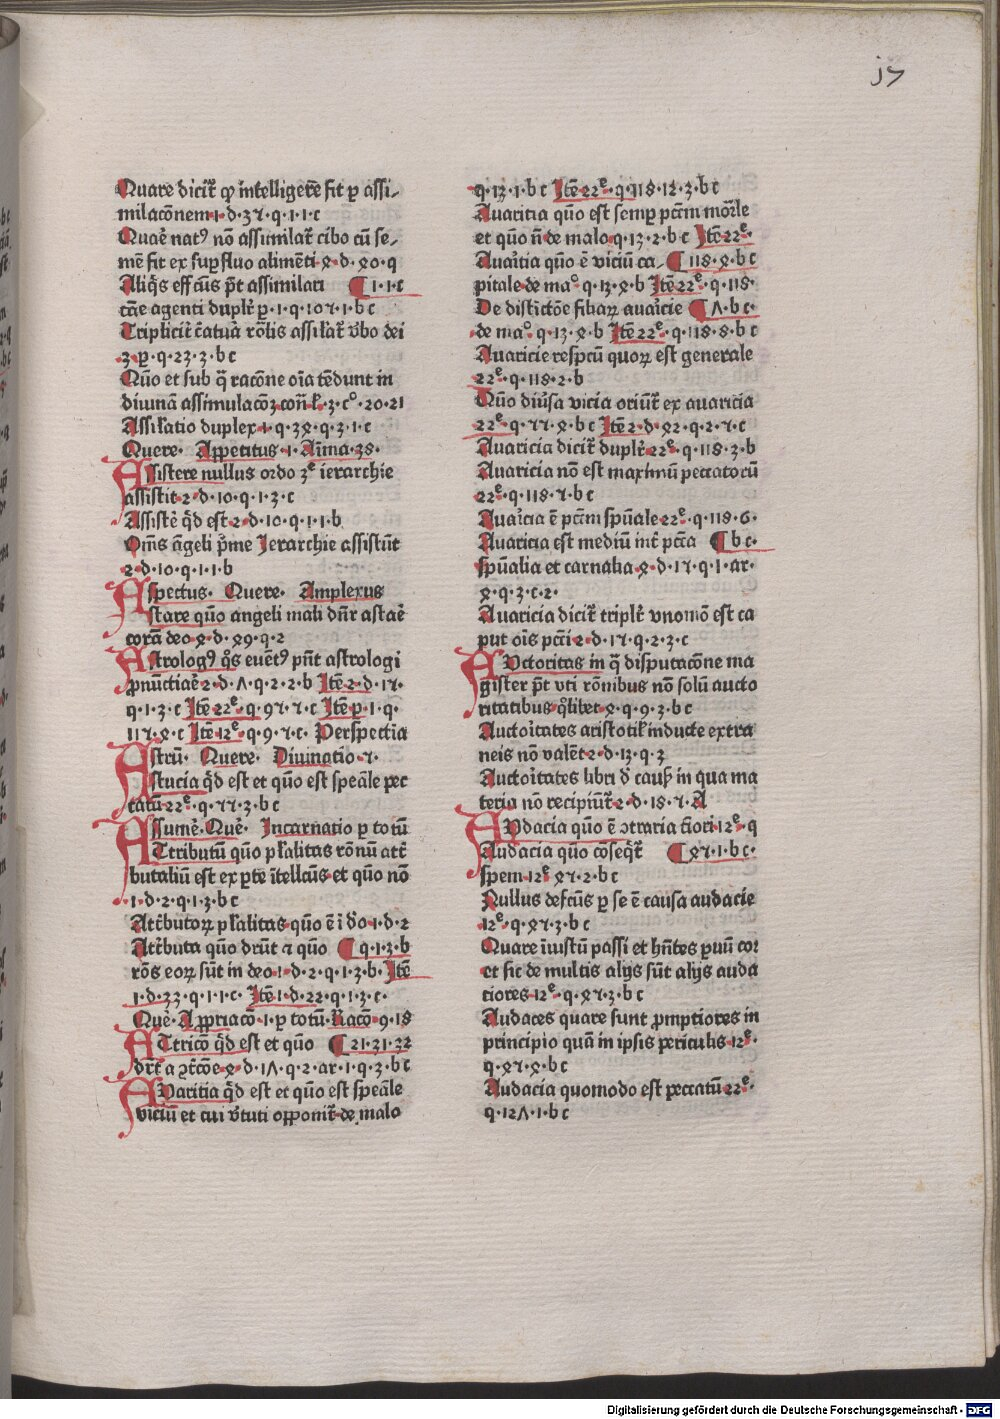 17
Quare dicit᷑ ꝙ intelligere fit ꝑ assi⸗
milacōnem·1·d·37·q·1·1·c
Quāe natꝰ nō assimilat᷑ cibo cū se⸗
mē fit ex suꝑfluo alimēti·4·d·40·q
Aliq̄s effcūs p̄t assimilari ¶1·1·c
cāe agenti duplr̄ p·1·q·107·1·bc
Triplicit᷑ c̄atura rōlis assilat᷑ v̄bo dei
3·p·q·23·3·bc
Quō et sub q̄ racōne oīa tēdunt in
diuinā assimulacōȝ con̄ l·3·c°·20·21
Assilatio duplex·1·q·34·q·3·1·c
Quere· Appetitus·1·Aīma·38·
Assistere nullus ordo 3e ierarchie
assistit·2·d·10·q·1·3·c
Assistē q̄d est·2·d·10·q·1·1·b
Om̄s āgeli p̄me Ierarchie assistūt
2·d·10·q·1·1·b
Aspectus· Quere· Amplexus
Astare quō angeli mali dn̄r astaē
corā deo·4·d·49·q·2
Astrologꝰ q̄s euētꝰ pn̄t astrologi
ꝓnūctiaē·2·d·Λ·q·2·2·b Itē·2·d·17·
q·1·3·c Itē 22e·q·97·7·c Itē p·1·q·
117·4·c Itē·12e·q·9·7·c· Perspectia
Astrū· Quere· Diuinatio·7·
Astucia q̄d est et quō est speāle pec
catū·22e·q·77·3·bc
Assumē·Quē· Incarnatio ꝑ totū
Attributū quō pl̄alitas rōnū att᷑i
butaliū est ex ꝑte ītellcūs·et quō nō
·1·d·2·q·1·3·bc
Att᷑ibutoꝝ pl̄alitas quō ē ī d̄o·1·d·2
Att᷑ibuta quō drn̄t ⁊ quō ¶q·1·3·b
rōs eoꝝ sūt in deo·1·d·2·q·1·3·b·Itē
1·d·33·q·1·1·c· Itē·1·d·22·q·1·3·c·
Quē·Aꝓpriacō·1·ꝑ totū·Racō·9·18
Attricō q̄d est et quō ¶21·31·32
drt̄ a ꝯt᷑cōe·4·d·1Λ·q·2·ar·1·q·3·bc
Auaritia q̄d est et quō est speāle
viciū et cui v̄tuti opponit᷑·de·malo
q·13·1·bc Itē·22e·q·118·12·3·bc
Auaritia quō est semꝑ pctm̄ mōrle
et quō n̄·de malo·q·13·2·bc Itē 22e·
Auar̄itia quō ē viciū ca ¶118·4·bc
pitale·de ma°·q·13·4·b Itē 22e·q·118·
De distīctōe filiaꝝ auaricie ¶Λ·bc·
de ma°·q·13·4·b Itē 22e·q·118·8·bc
Auaricie respcū quoꝝ est generale
22e·q·118·2·b
Quō diūsa vicia oriūt᷑ ex auaricia
22e·q·77·4·bc Itē·2·d·42·q·2·7·c
Auaricia dicit᷑ duplr̄·22e·q·118·3·b
Auaricia nō est maximū peccatorū
22e·q·118·7·bc
Auar̄cia ē pctm̄ spūale·22e·q·118·6·
Auaricia est mediū int᷑ pctā ¶bc·
spūalia et carnalia·4·d·17·q·1·ar·
4·q·3·c·2·
Auaricia dicit᷑ triplr̄ vnomō est ca
put oīs pctī·2·d·17·q·2·3·c
Auctoritas in q̄ disputacōne ma
gister p̄t vti rōnibus nō solū aucto
ritatibus q̄libet·4·q·9·3·bc
Auctor̄itates aristotil᷑ inducte extra
neis nō valēt·2·d·13·q·3
Auctor̄itates libri d̄ caus̄ in qua ma
teria nō recipiūt᷑·2·d·18·7·A
Audacia quō ē ꝯtraria tīori·12e·q
Audacia quō cōseq̄t᷑ ¶47·1·bc·
spem·12e·47·2·bc
Nullus defcūs ꝑ se ē causa audacie
12e·q·47·3·bc
Quare īiustū passi et hn̄tes ꝑuū cor
et sic de multis alijs sūt alijs auda
ciores·12e·q·47·3·bc
Audaces quare sunt ꝓmptiores in
principio quā in ipsis periculis·12e·
q·47·4·bc
Audacia quomodo est peccatū·22e·
q·12Λ·1·bc
Digitalisierung gefördert durch die Deutsche Forschungsgemeinschaft - DFG